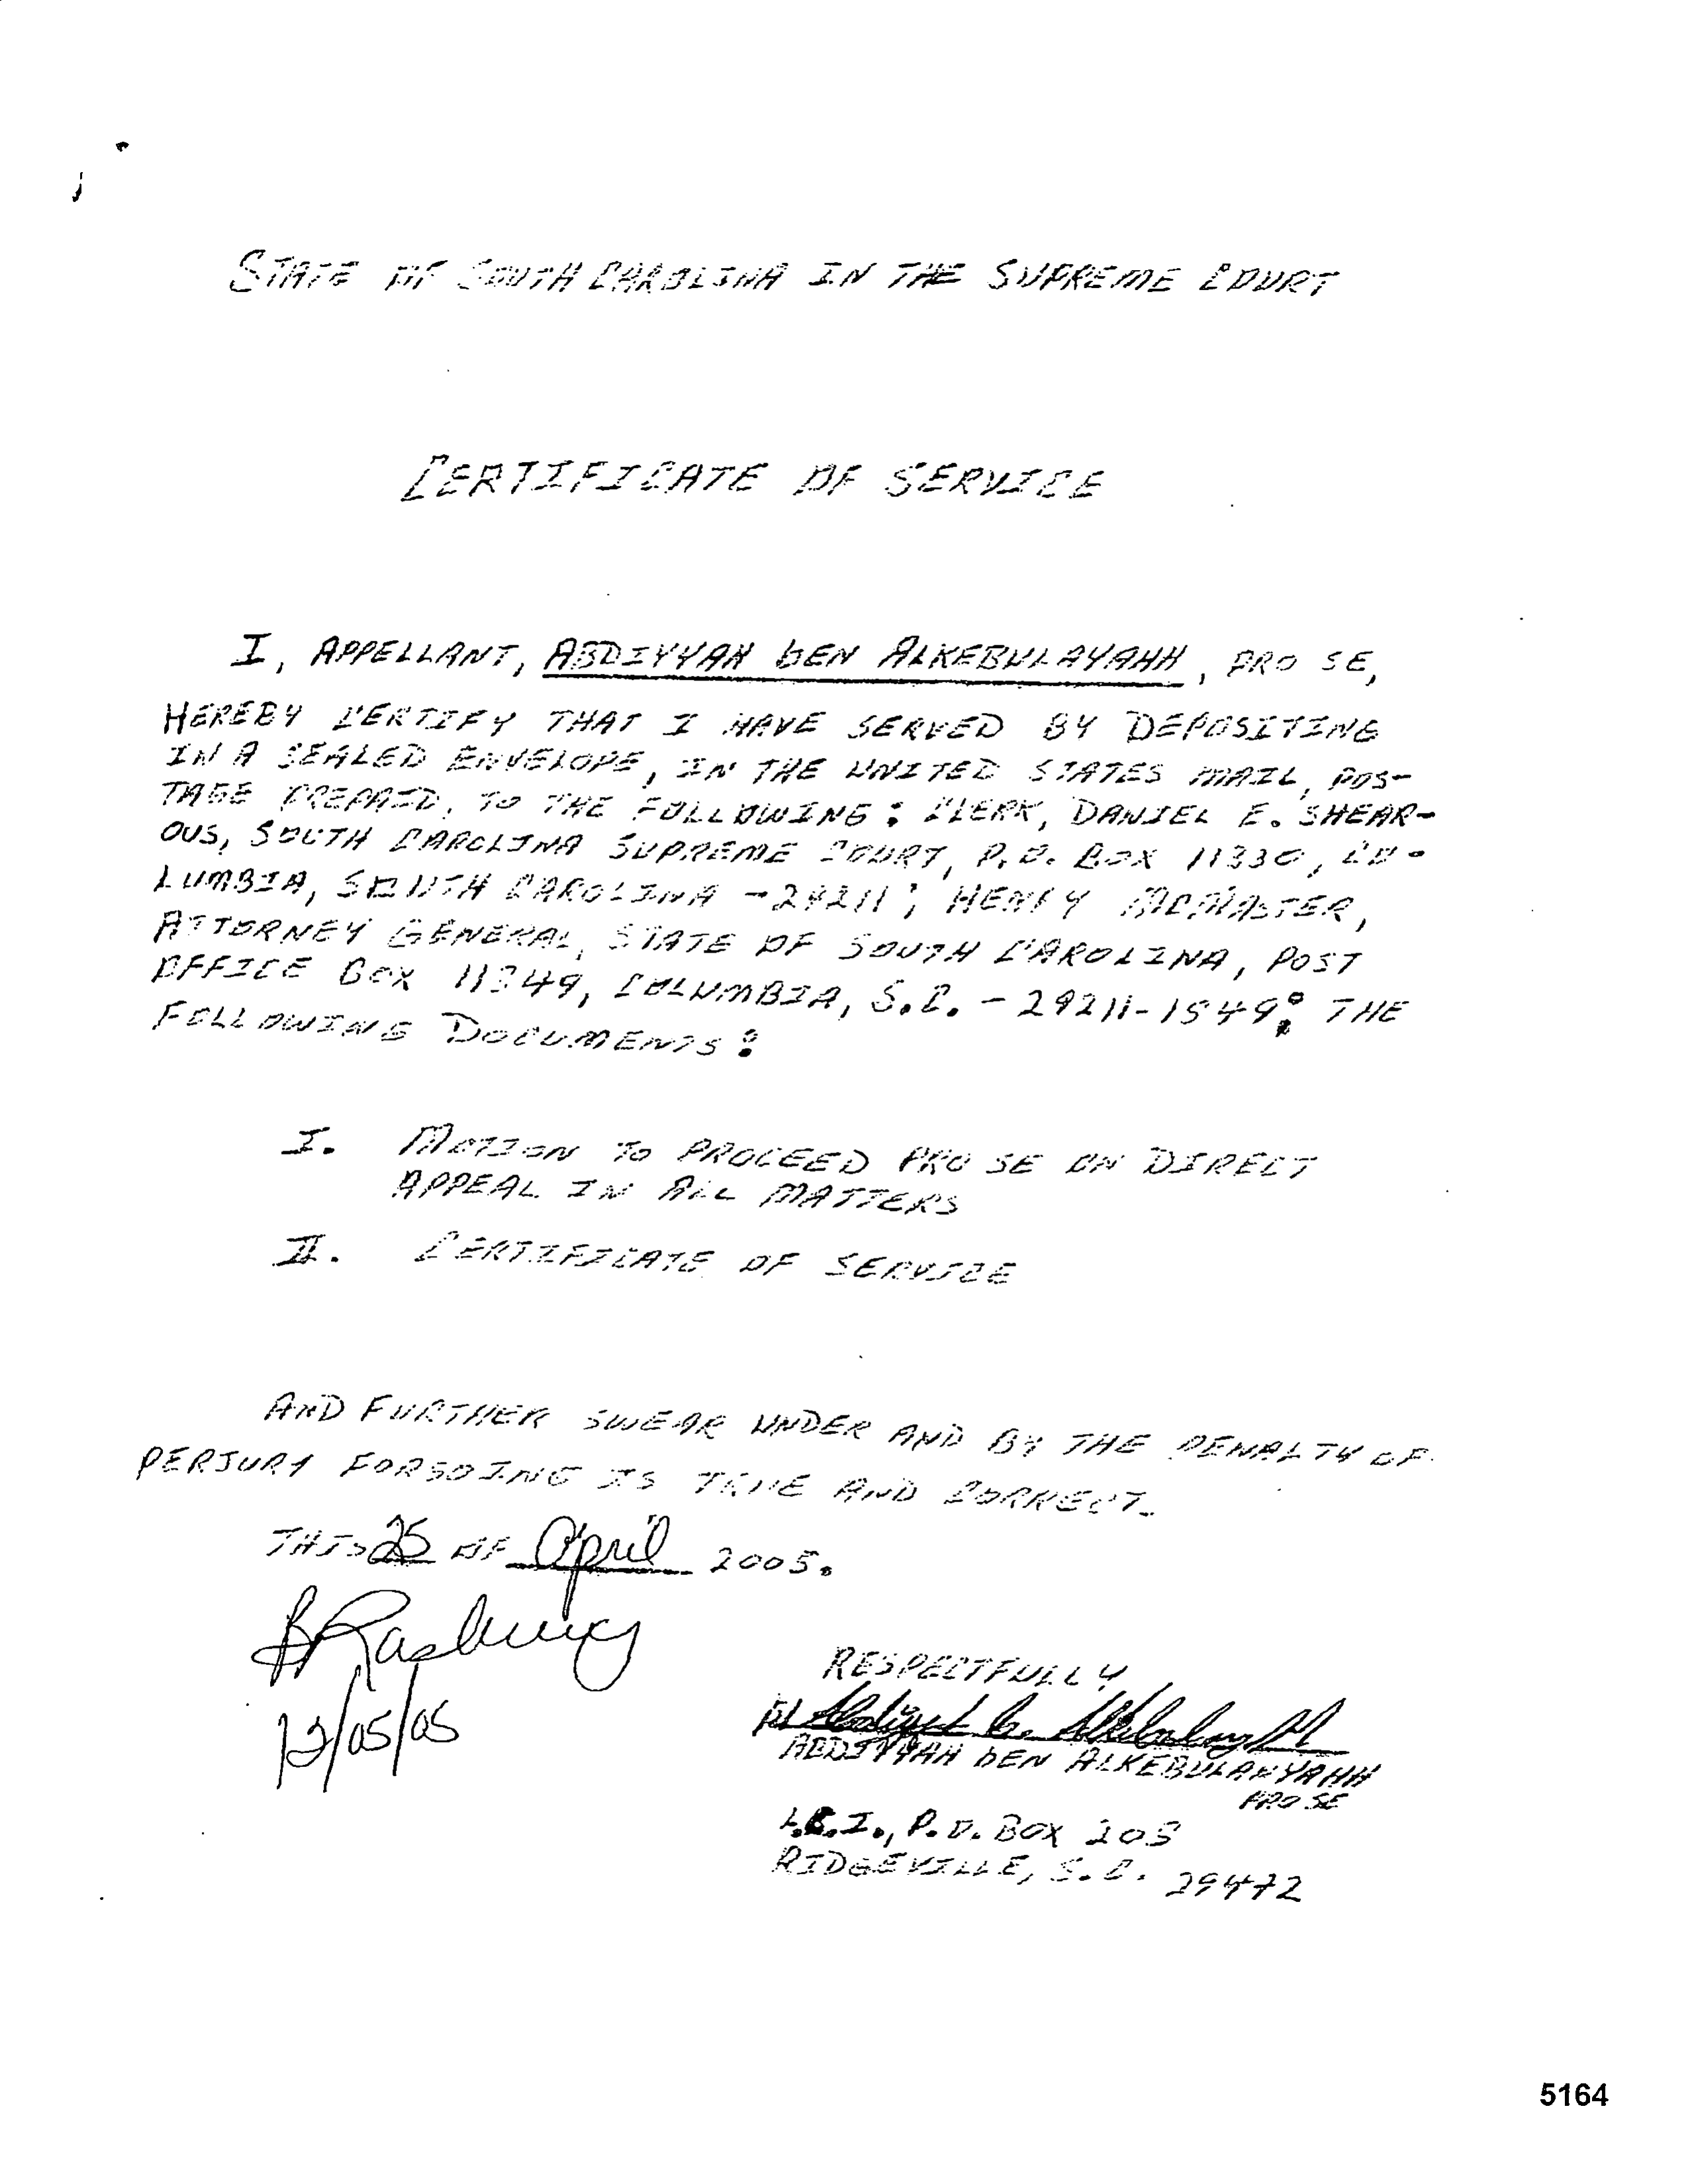 STATE OF SOUTH CAROLINA IN THE SUPREME COURT
CERTIFICATE OF SERVICE
I, APPELLANT, ABDIYYAH bEN ALKEBULAYAHH, PRO SE,
HEREBY CERTIFY THAT I HAVE SERVED BY DEPOSITING
IN A SEALED ENVELOPE, IN THE UNITED STATES MAIL, POS-
TAGE PREPAID, TO THE FOLLOWING: CLERK, DANIEL E. SHEAR-
OUS, SOUTH CAROLINA SUPREME COURT, P.O. BOX 11330, CO-
LUMBIA, SOUTH CAROLINA - 29211; HENRY MCMASTER,
ATTORNEY GENERAL, STATE OF SOUTH CAROLINA, POST
OFFICE BOX 11549, COLUMBIA, S.C. - 29211-1549; THE
FOLLOWING DOCUMENTS:
I. MOTION TO PROCEED PRO SE ON DIRECT
APPEAL IN ALL MATTERS
II. CERTIFICATE OF SERVICE
AND FURTHER SWEAR UNDER AND BY THE PENALTY OF
PERJURY FORGOING IS TRUE AND CORRECT.
THIS 25 OF April 2005.
12/05/05
RESPECTFULLY
ABDIYYAH bEN ALKEBULANYAHH
PRO SE
L.C.I., P.O. BOX 205
RIDGEVILLE, S.C. 29472
5164